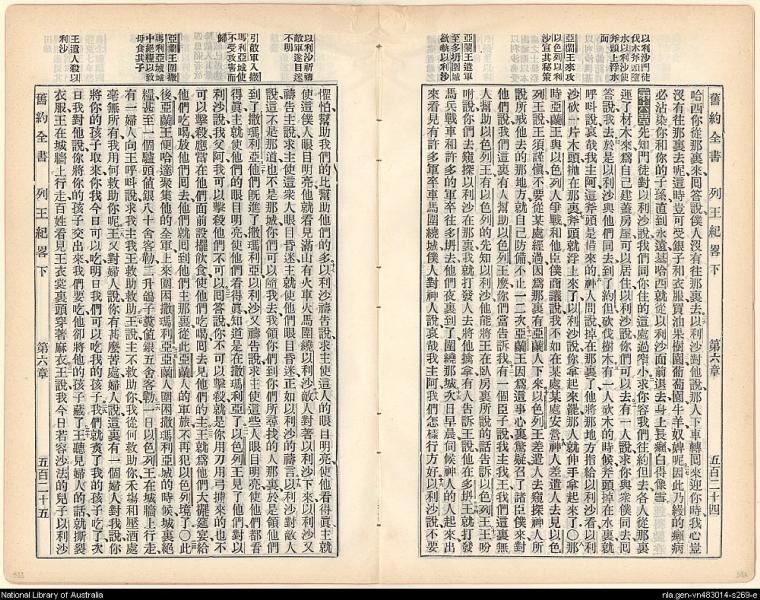 以利沙門徒
伐木斧頭墮
水以利沙使
斧頭上浮水
面
亞蘭王來攻
以色列以利
沙宣其秘策
亞蘭王遣軍
至多坍圍城
欲執以利沙
舊約全書 列王紀畧下 第六章 五百二十四
哈西你從那裏來回答說僕人沒有往那裏去以利沙對他說那人下車轉回來迎你時我心豈
沒有往那裏去呢這時豈可受銀子和衣服買油果樹園葡萄園牛羊奴婢呢因此乃縵的癩病
必沾染你和你的子孫直到永遠基哈西就從以利沙面前退去身上長癩白得像雪
先知門徒對以利沙說我們同你住的這處過窄小求你容我們往約但去各人從那裏
運了材木來爲自己建蓋房屋可以居住以利沙說你們可以去有一人說求你與衆僕同去回
答說我去於是以利沙與他們同去到了約但砍伐樹木有一人砍木的時候斧頭掉在水裏就
呼呌說哀哉我主阿這斧頭是借來的神人問說掉在那裏了他將那地方指給以利沙看以利
沙砍一片木頭拋在那裏斧頭就浮上來了以利沙說你拿起來罷那人就伸手拿起來了〇那
時亞蘭王與以色列人爭戰和他臣僕商議說我不如在某處某處安營神人差遣人去見以色
列王說王須謹愼不要從某處經過因爲那裏有亞蘭人下來以色列王差遣人去窺探神人所
說所戒他去的那地方就自已防備不止一二次亞蘭王因爲這事心裏驚疑召了諸臣僕來對
他們說我們這裏有人幫助以色列王麽你們當告訴我有一個臣子說我主我王我們這裏無
人幫助以色列王有以色列的先知以利沙他能將王在臥房裏所說的話告訴以色列王王吩
咐說你們去窺探以利沙在那裏我就打發人去將他擒拿有人告訴王說他在多坍王就打發
馬兵戰車和許多的軍卒往多坍去他們夜裏到了圍繞那城次日早晨伺候神人的人起來出
來看見有許多軍卒車馬圍繞城僕人對神人說哀哉我主阿我們怎樣行纔好以利沙說不要
以利沙祈禱
敵軍遂目迷
不明
引敵軍入撒
瑪利亞城使
不受攻害而
歸
亞蘭王圍撒
瑪利亞城城
中絕糧以致
母食其子
王遣人殺以
利沙
懼怕幫助我們的比幫助他們的多以利沙禱告說求主使這人的眼目明亮使他看得眞主就
使這僕人眼目明亮使他就看見滿山有火車火馬圍繞以利沙敵人對著以利沙下來以利沙又
禱告主說求主使這衆人眼目昏迷主就使他們眼目昏迷正如以利沙的禱言以利沙對敵人
說這不是那道也不是那城你們可以隨我去我領你們到你們所尋找的人那裏於是領他們
到了撒瑪利亞他們旣進了撒瑪利亞以利沙又禱告說求主使這些人眼目明亮使他們都看
得眞主就使他們的眼目明亮使他們看得眞知道是在撒瑪利亞了以色列王見了他們對以
利沙說我父阿我可以擊殺他們不可以回答說你不可以擊殺就是你用刀用弓擄來的也不
可以擊殺應當在他們面前設擺飲食使他們吃喝回去見他們的主王就爲他們大擺筵宴給
他們吃喝放他們回去他們就回到他們主那裏從此亞蘭人的軍旅不再犯以色列境了〇此
後亞蘭王便哈達聚集他的全軍上來圍困撒瑪利亞亞蘭人圍困撒瑪利亞城的時候城裏絕
糧甚至一個驢頭値銀八十舍客勒二升鴿子糞値銀五舍客勒一日以色列王在城牆上行走
有一婦人向王呼呌說求我主我王救助救助王說主不救助你我從何救助你禾塲和壓酒處
毫無所有我用何救助你呢王又對婦人說你有甚麽苦處婦人說這裏有一個婦人對我說你
將你的孩子取來你我今日可以吃明日我們可以吃我的孩子我們就煑了我的孩子吃了次
日我對他說你將你的孩子交出來我們要吃他卻將他的孩子藏了王聽見婦人的話就撕裂
衣服王在城牆上行走百姓看見王衣裳裏頭穿著麻衣王說我今日若容沙法的兒子以利沙
舊約全書 列王紀畧下 第六章 五百二十五
National Library of Australia
nla.gen-vn483014-s269-e